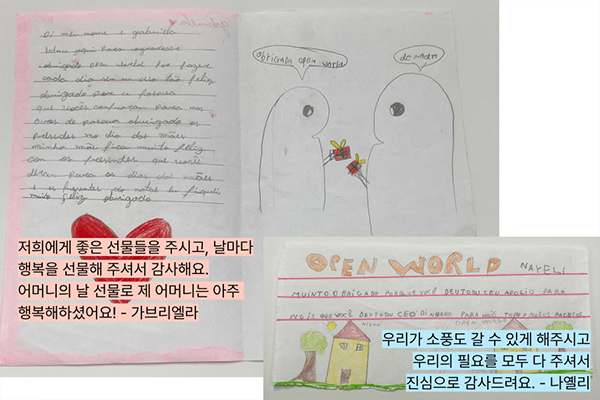 gabriella
Oi meu nome e gabriella
estou aqui para agradecer
obrigado open world por fazer
cada dia ser um dia tão feliz
obrigado por a páscoa
que vocês compraram para nos
ovos de páscoa obrigado os
presentes no dia das mães
minha mãe fica muito feliz
com os presentes que vocês
deram para os dias das mães
e os presentes do natal eu fiquei
muito feliz obrigado
obrigada open world
de nada
저희에게 좋은 선물들을 주시고, 날마다
행복을 선물해 주셔서 감사해요.
어머니의 날 선물로 제 어머니는 아주
행복해하셨어요! - 가브리엘라
OPEN WORLD NAYELI
MUINTO OBRIGADO PORQUE VOCÊ DEUTODU CEU APOLIO PARA
NOIS QUE VOCÊ DEUTODU CEO DINHERO PARA NOIS TODO
OPEN WORLD
우리가 소풍도 갈 수 있게 해주시고
우리의 필요를 모두 다 주셔서
진심으로 감사드려요. - 나옐리